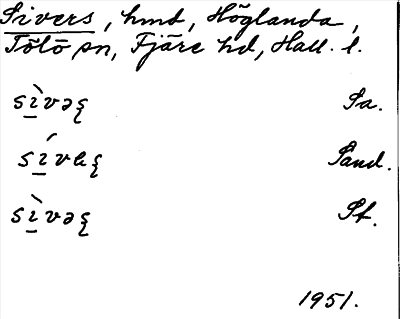 Sivers, hmd, Höglanda,
Tölö sn, Fjäre hd, Hall. l.
sı̱̀vəʂ Sa.
sı̱́vɐʂ Sand.
sı̱̀vəʂ St.
1951.